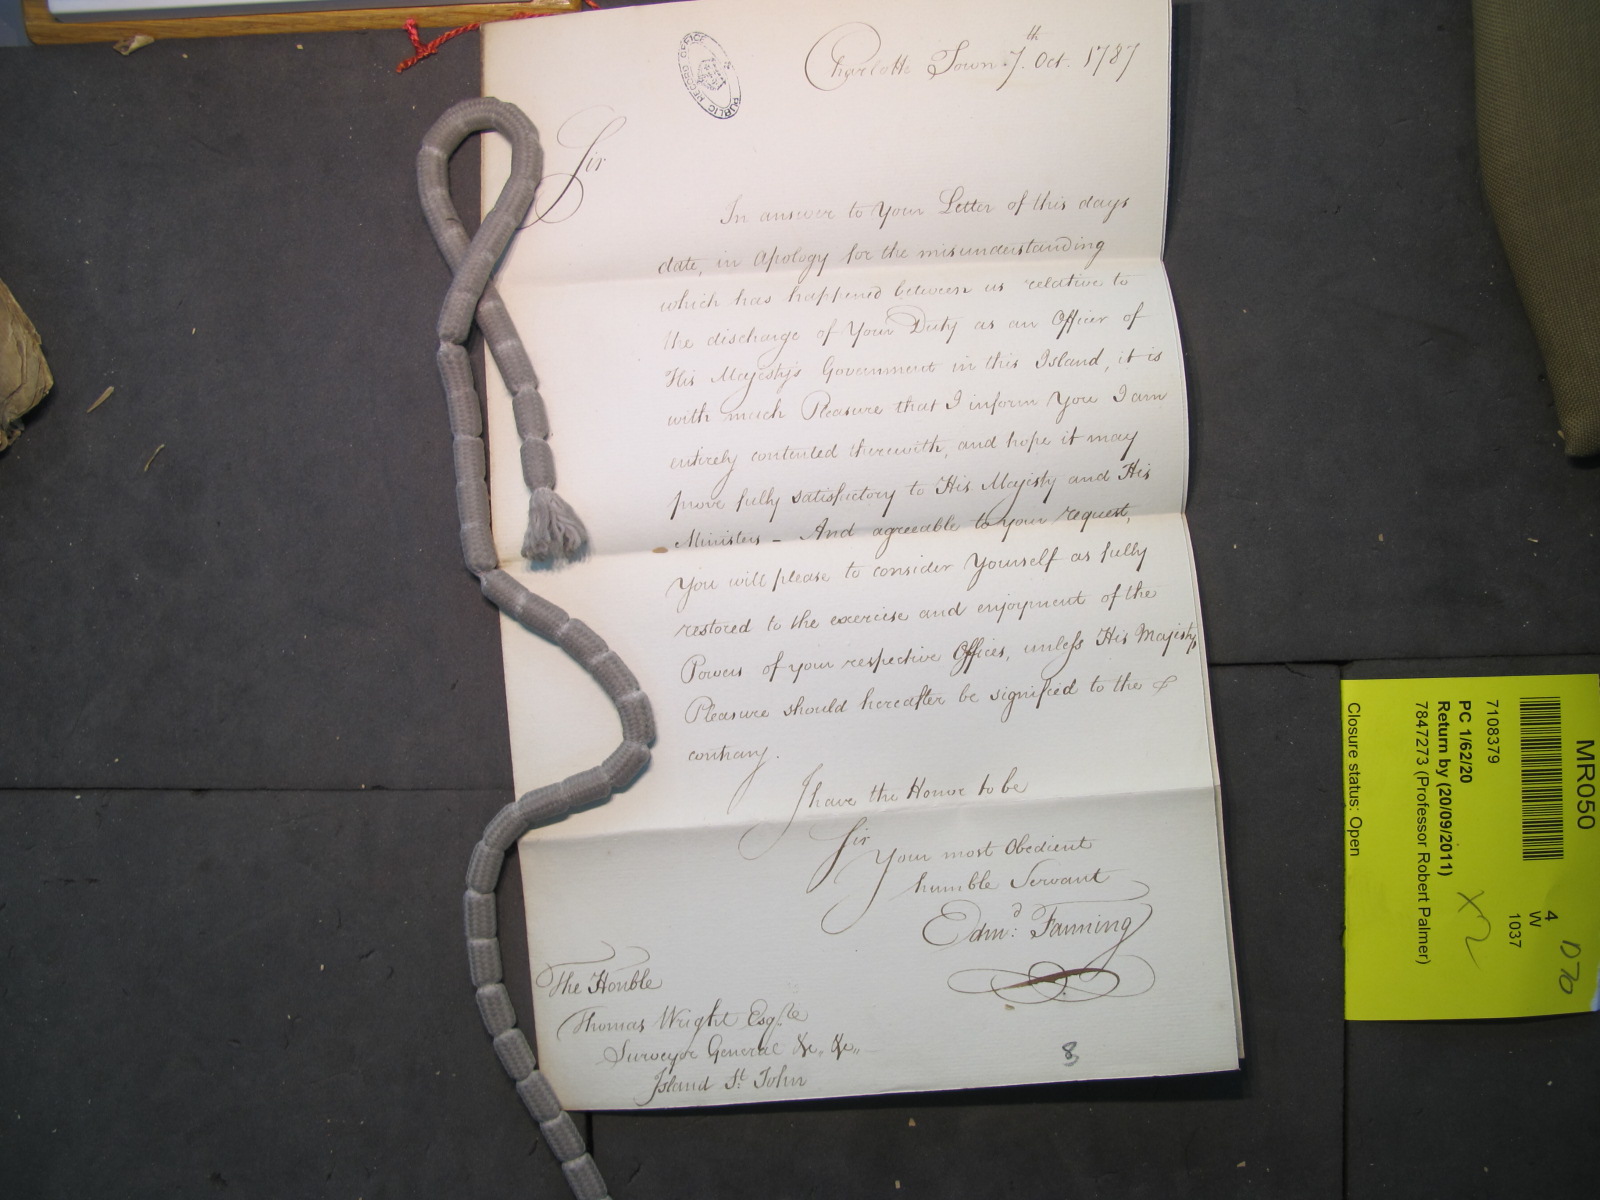 PUBLIC RECORD OFFICE
Charlotte Town 7.th Oct. 1787
Sir
In answer to Your Letter of this days
date, in Apology for the misunderstanding
which has happened between us relative to
the discharge of Your Duty as an Officer of
His Majesty's Government in this Island, it is
with much Pleasure that I inform You I am
entirely contented therewith, and hope it may
prove fully satisfactory to His Majesty and His
Ministers - And agreeable to your request,
You will please to consider Yourself as fully
restored to the exercise and enjoyment of the
Powers of your respective Offices, unless His Majestys
Pleasure should hereafter be signified to the
contrary.
I have the Honor to be
Sir
Your most Obedient
humble Servant
Edmd: Fanning
The Honble
Thomas Wright Esqre
Surveyor General &c. &c.
Island St. John
8
MR050
7108379
PC 1/62/20
Return by (20/09/2011)
7847273 (Professor Robert Palmer)
Closure status: Open
4
W
1037
D70